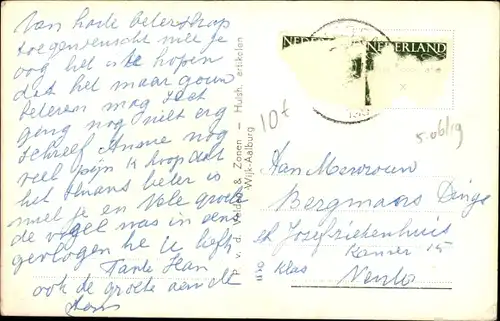 Van harte beterschap
toegewenscht met je
oog het is te hopen
dat het maar gouw
beteren mag Het
ging nog niet erg
schreef Anne nog
veel pijn ik hoop dat
het thans beter is
met je en Vele groete
de vogel was in eens
gevlogen he u heft
Tante Han
ook de groete aen de
P. v. d. Zonen - Huish. artikelen
Wijk-Aalburg
NEDERLAND
10t
5 oblg
Aan Mevrouw
Bergmans
St Josefziekenhuis
Kamer 15
Klas
Venlo